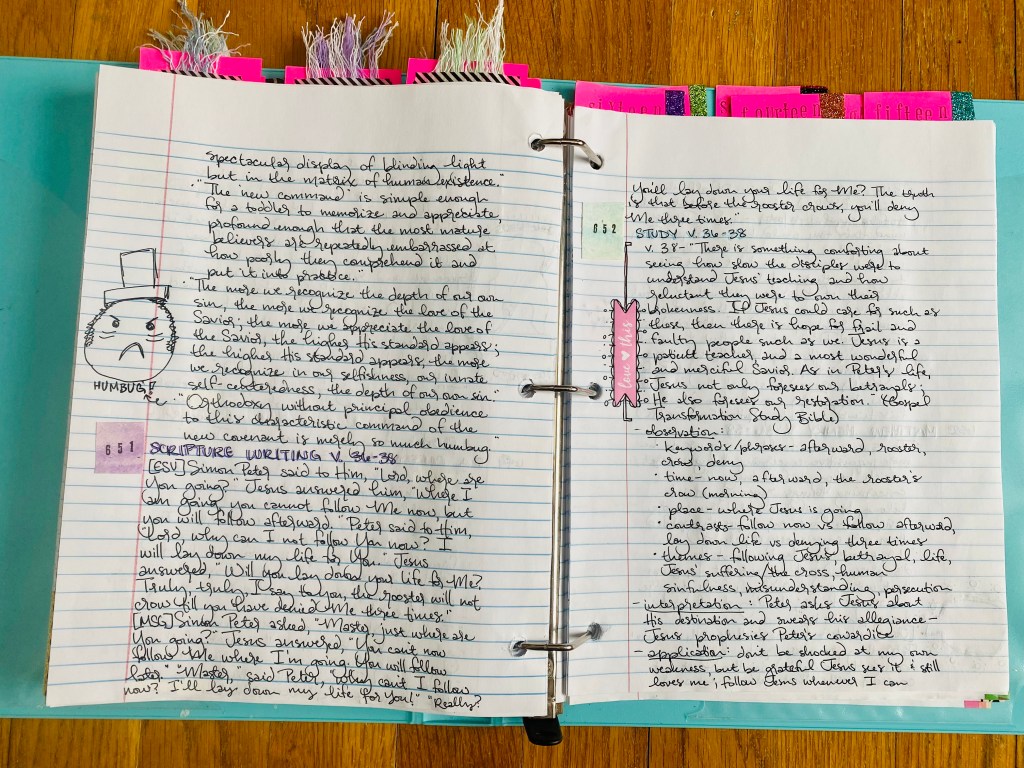 spectacular display of blinding light
but in the matrix of human existence."
• "The 'new command' is simple enough
for a toddler to memorize and appreciate,
profound enough that the most mature
believers are repeatedly embarrassed at
how poorly they comprehend it and
put it into practice."
• "The more we recognize the depth of our own
sin, the more we recognize the love of the
Savior; the more we appreciate the love of
the Savior, the higher His standard appears;
the higher His standard appears, the more
we recognize in our selfishness, our innate
self-centeredness, the depth of our own sin."
• "Orthodoxy without principal obedience
to this characteristic command of the
new covenant is merely so much humbug."
HUMBUG!
651
SCRIPTURE WRITING V. 36-38
[ESV] Simon Peter said to Him, "Lord, where are
You going?" Jesus answered him, "Where I
am going you cannot follow Me now, but
you will follow afterward." Peter said to Him,
"Lord, why can I not follow You now? I
will lay down my life for You." Jesus
answered, "Will you lay down your life for Me?
Truly, truly, I say to you, the rooster will not
crow till you have denied Me three times."
[MSG] Simon Peter asked, "Master, just where are
You going?" Jesus answered, "You can't now
follow Me where I'm going. You will follow
later." "Master," said Peter, "why can't I follow
now? I'll lay down my life for You!" "Really?
sixteen
fourteen
fifteen
You'll lay down your life for Me? The truth
is that before the rooster crows, you'll deny
Me three times."
652
STUDY V. 36-38
v. 38 - "There is something comforting about
seeing how slow the disciples were to
understand Jesus' teaching and how
reluctant they were to own their
brokenness. If Jesus could care for such as
these, then there is hope for frail and
faulty people such as we. Jesus is a
patient teacher, and a most wonderful
and merciful Savior. As in Peter's life,
Jesus not only foresees our betrayals;
He also foresees our restoration." (Gospel
Transformation Study Bible)
love ♥ this
- observation:
• keywords/phrases - afterward, rooster,
crow, deny
• time - now, afterward, the rooster's
crow (morning)
• place - where Jesus is going
• contrasts - follow now vs follow afterward,
lay down life vs denying three times
• themes - following Jesus, betrayal, life,
Jesus' suffering/the cross, human
sinfulness, misunderstanding, persecution
- interpretation: Peter asks Jesus about
His destination and swears his allegiance -
Jesus prophesies Peter's cowardice
- application: don't be shocked at my own
weakness, but be grateful Jesus sees it & still
loves me; follow Jesus whenever I can